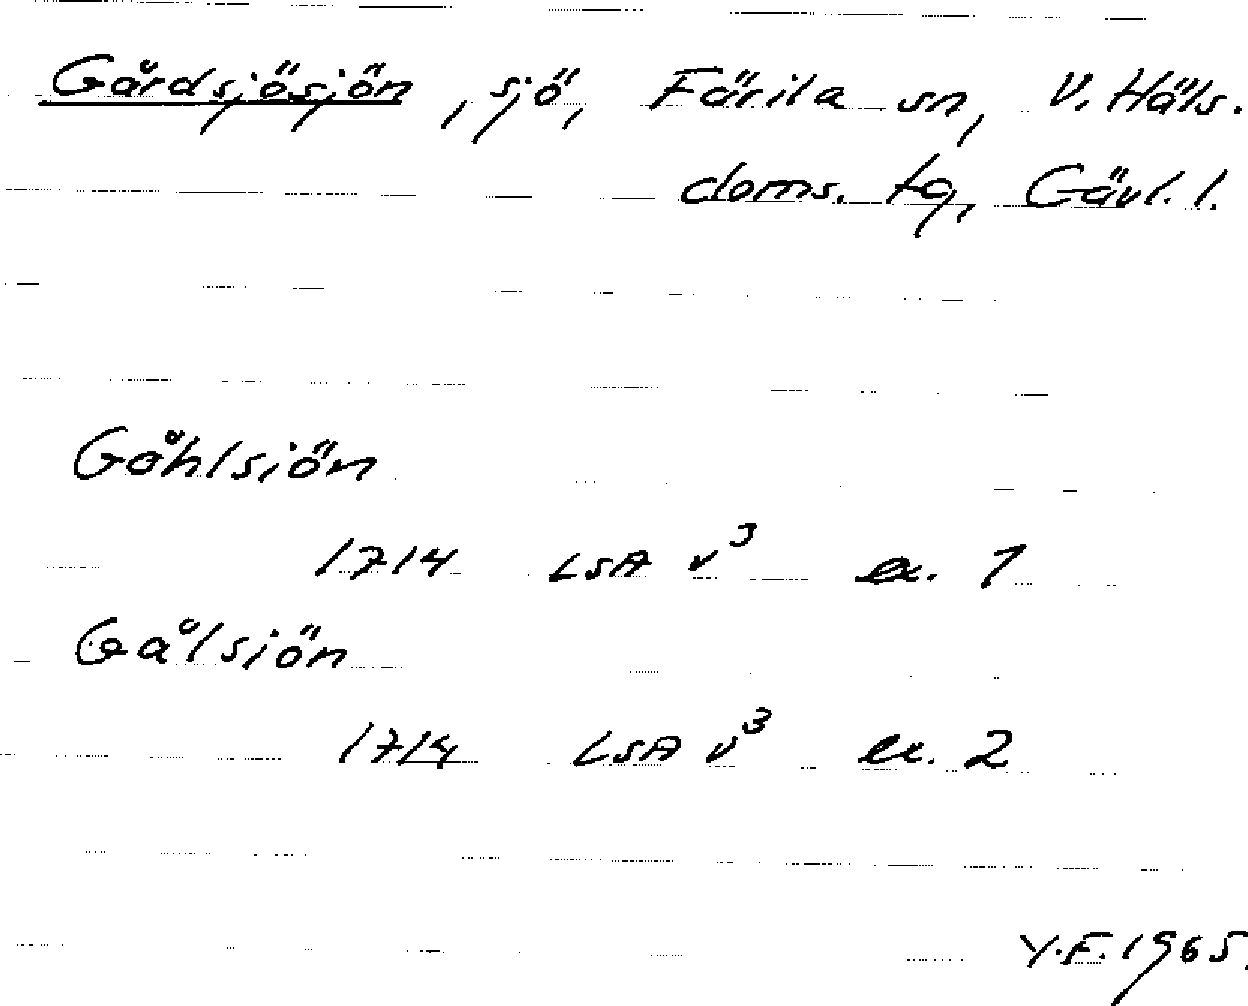 Gårdsjösjön, sjö, Färila sn, V. Häls.
doms. tg, Gävl. l.
Gåhlsiön
1714 LSA v³ ex. 1
Gålsiön
1714 LSA v³ ex. 2
Y.F. 1965.